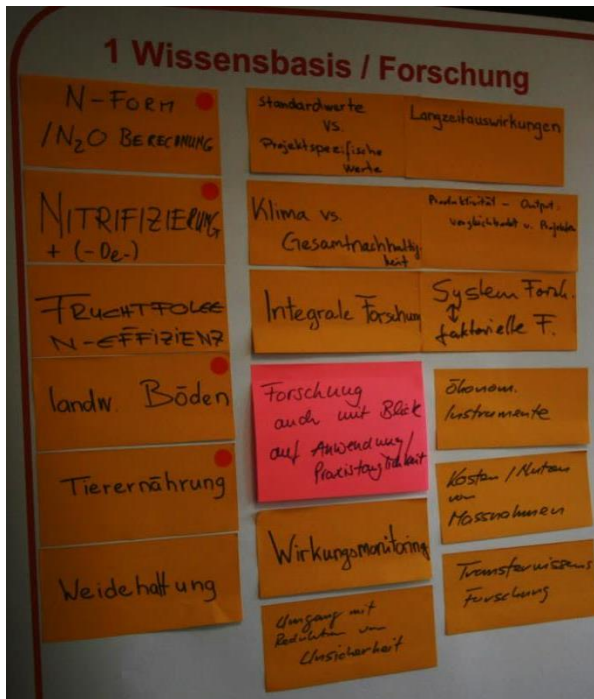 1 Wissensbasis / Forschung
N-FORM
/N₂O BERECHNUNG
NITRIFIZIERUNG
+ (-De-)
FRUCHTFOLGE
N-EFFIZIENZ
landw. Böden
Tierernährung
Weidehaltung
Standardwerte
vs.
Projektspezifische
Werte
Klima vs.
Gesamtnachhaltig-
keit
Integrale Forschung
Forschung
auch mit Blick
auf Anwendung/
Praxistauglichkeit
Wirkungsmonitoring
Umgang mit
Reduktion von
Unsicherheit
Langzeitauswirkungen
Produktivität - Output.
Vergleichbarkeit v. Projekten
System Forsch.
↕
faktorielle F.
ökonom.
Instrumente
Kosten / Nutzen
von
Massnahmen
Transferwissens
Forschung